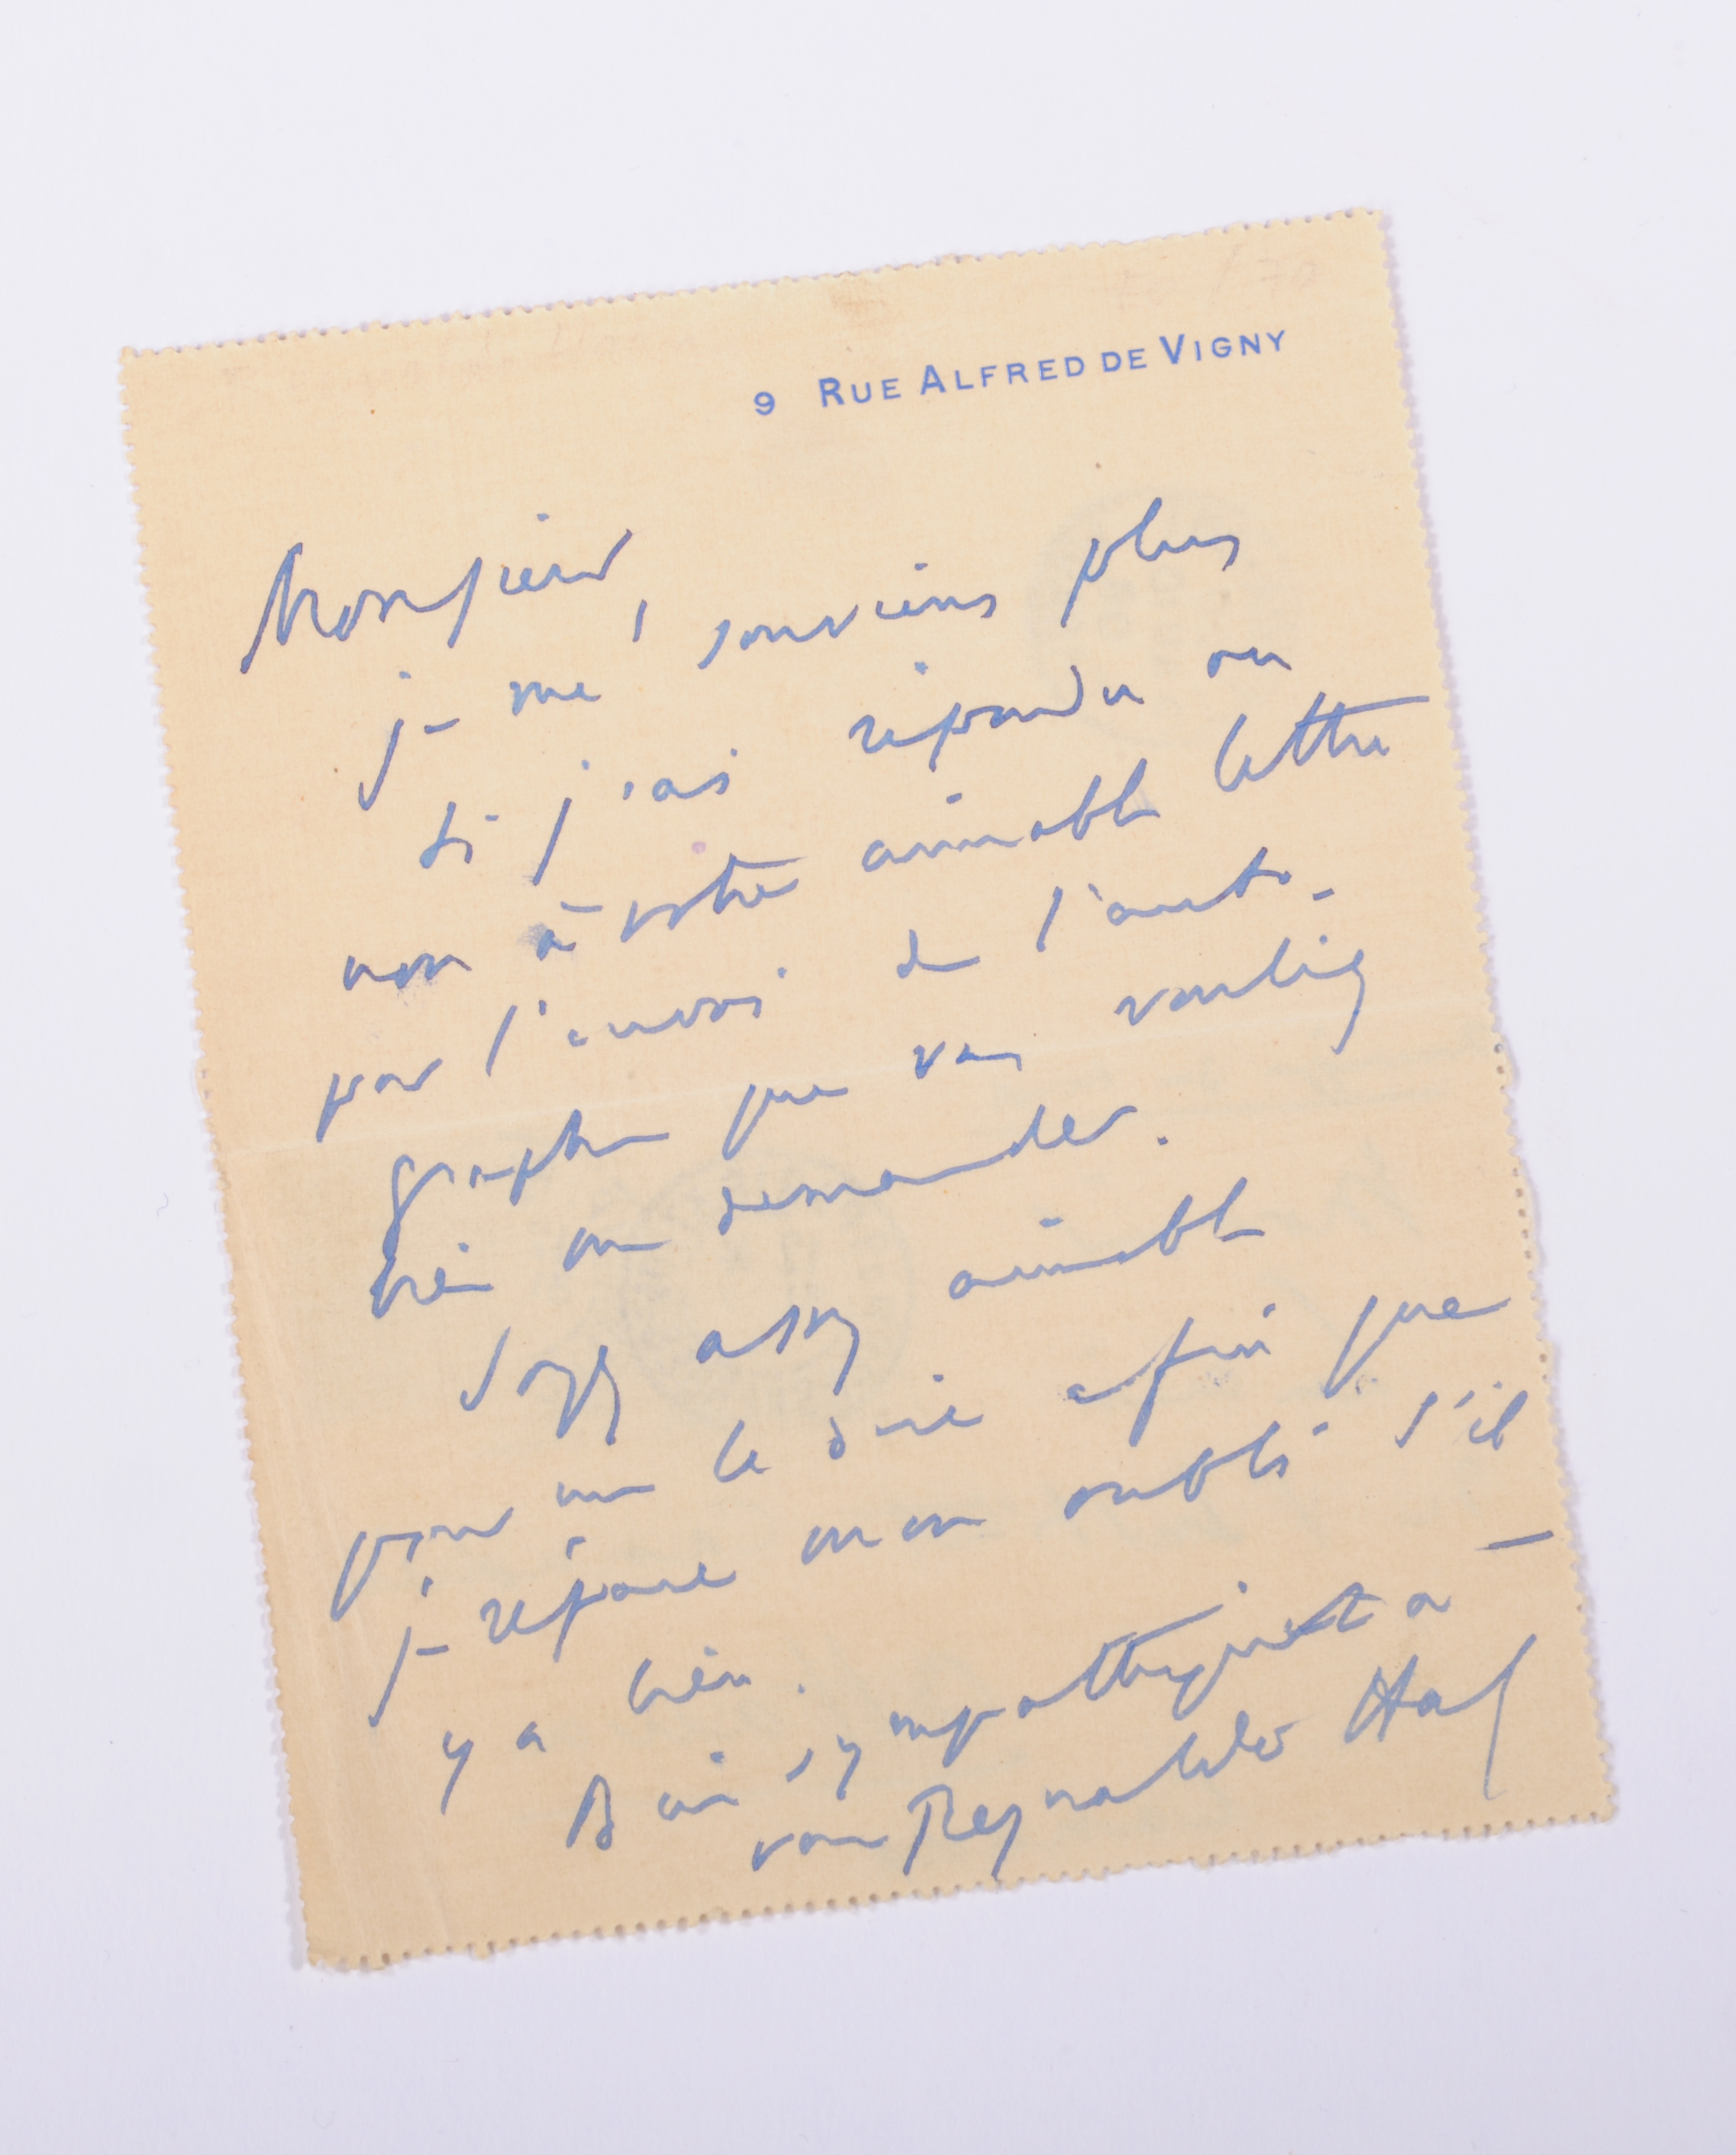 9 RUE ALFRED DE VIGNY
Monsieur,
je me souviens plus
si j'ai répondu ou
non à votre aimable lettre
par l'envoi de l'auto-
graphe que vous vouliez
bien me demander.
Soyez assez aimable
pour me le dire afin que
je répare mon oubli s'il
y a lieu.
Bien sympathiquement à
vous Reynaldo Hahn